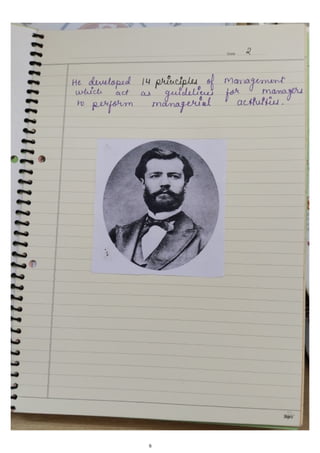 Date 2
He developed 14 principles of management
which act as guidelines for managers
to perform managerial activities.